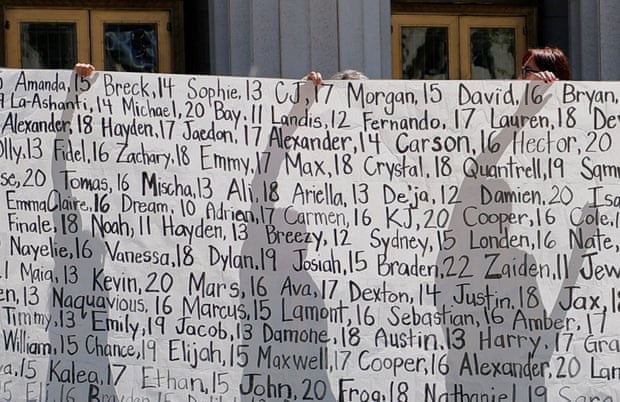 Amanda, 15 Breck, 14 Sophie, 13 CJ, 17 Morgan, 15 David, 16 Bryan,
9 La-Ashanti, 14 Michael, 20 Bay, 11 Landis, 12 Fernando, 17 Lauren, 18
Alexander, 18 Hayden, 17 Jaedon, 17 Alexander, 14 Carson, 16 Hector, 20
olly, 13 Fidel, 16 Zachary, 18 Emmy, 17 Max, 18 Crystal, 18 Quantrell, 19
20 Tomas, 16 Mischa, 13 Ali, 18 Ariella, 13 De'ja, 12 Damien, 20
EmmaClaire, 16 Dream, 10 Adrien, 17 Carmen, 16 KJ, 20 Cooper, 16 Cole,
Finale, 18 Noah, 11 Hayden, 13 Breezy, 12 Sydney, 15 Londen, 16 Nate,
Nayelie, 16 Vanessa, 18 Dylan, 19 Josiah, 15 Braden, 22 Zaiden, 11
Maia, 13 Kevin, 20 Mars, 16 Ava, 17 Dexton, 14 Justin, 18 Jax, 18
13 Naquavious, 16 Marcus, 15 Lamont, 16 Sebastian, 16 Amber, 17
Timmy, 13 Emily, 19 Jacob, 13 Damone, 18 Austin, 13 Harry, 17
William, 15 Chance, 19 Elijah, 15 Maxwell, 17 Cooper, 16 Alexander, 20
15 Kalea, 17 Ethan, 15 John, 20 Frog, 18 Nathaniel, 19
15 Eli, 16